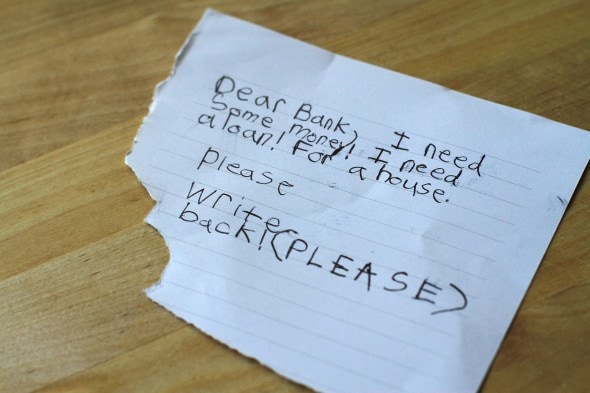 Dear Bank, I need
Some money! I need
a loan! For a house.
please
write
back!(PLEASE)